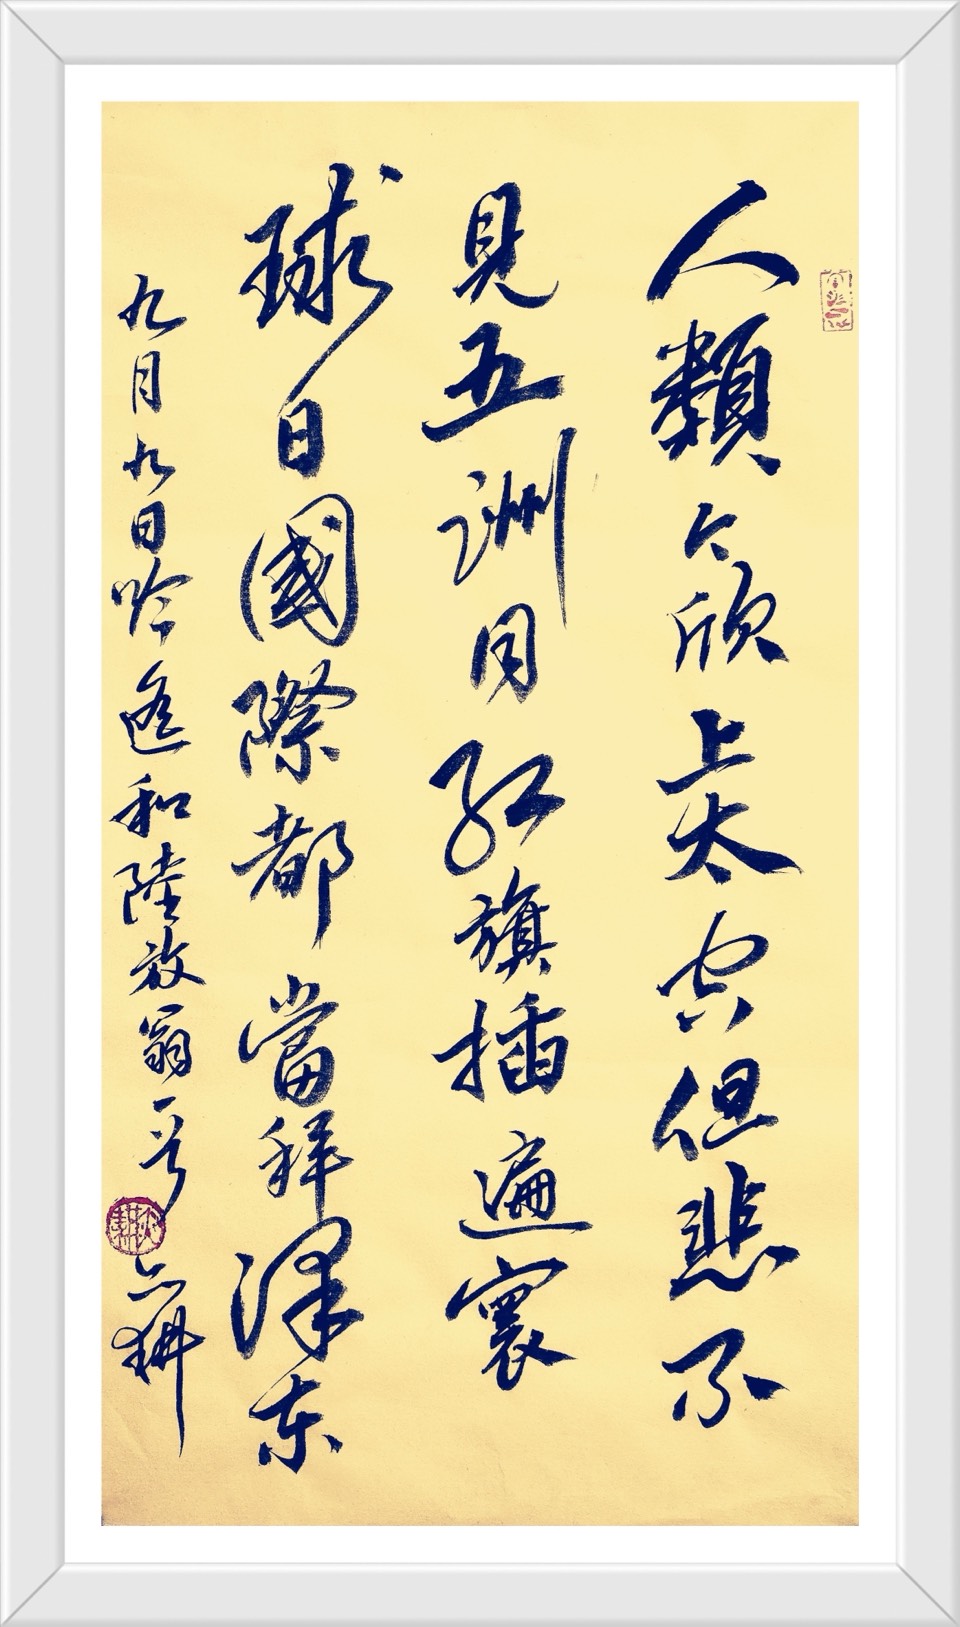 人類今欣上太空但悲不
見五洲同红旗插遍寰
球日國際都當拜泽东
九月九日吟遙和陸放翁一首
耕